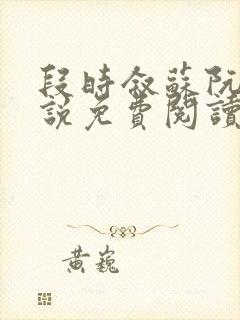 段時叙蘇阮
說免費閱讀
黃巍